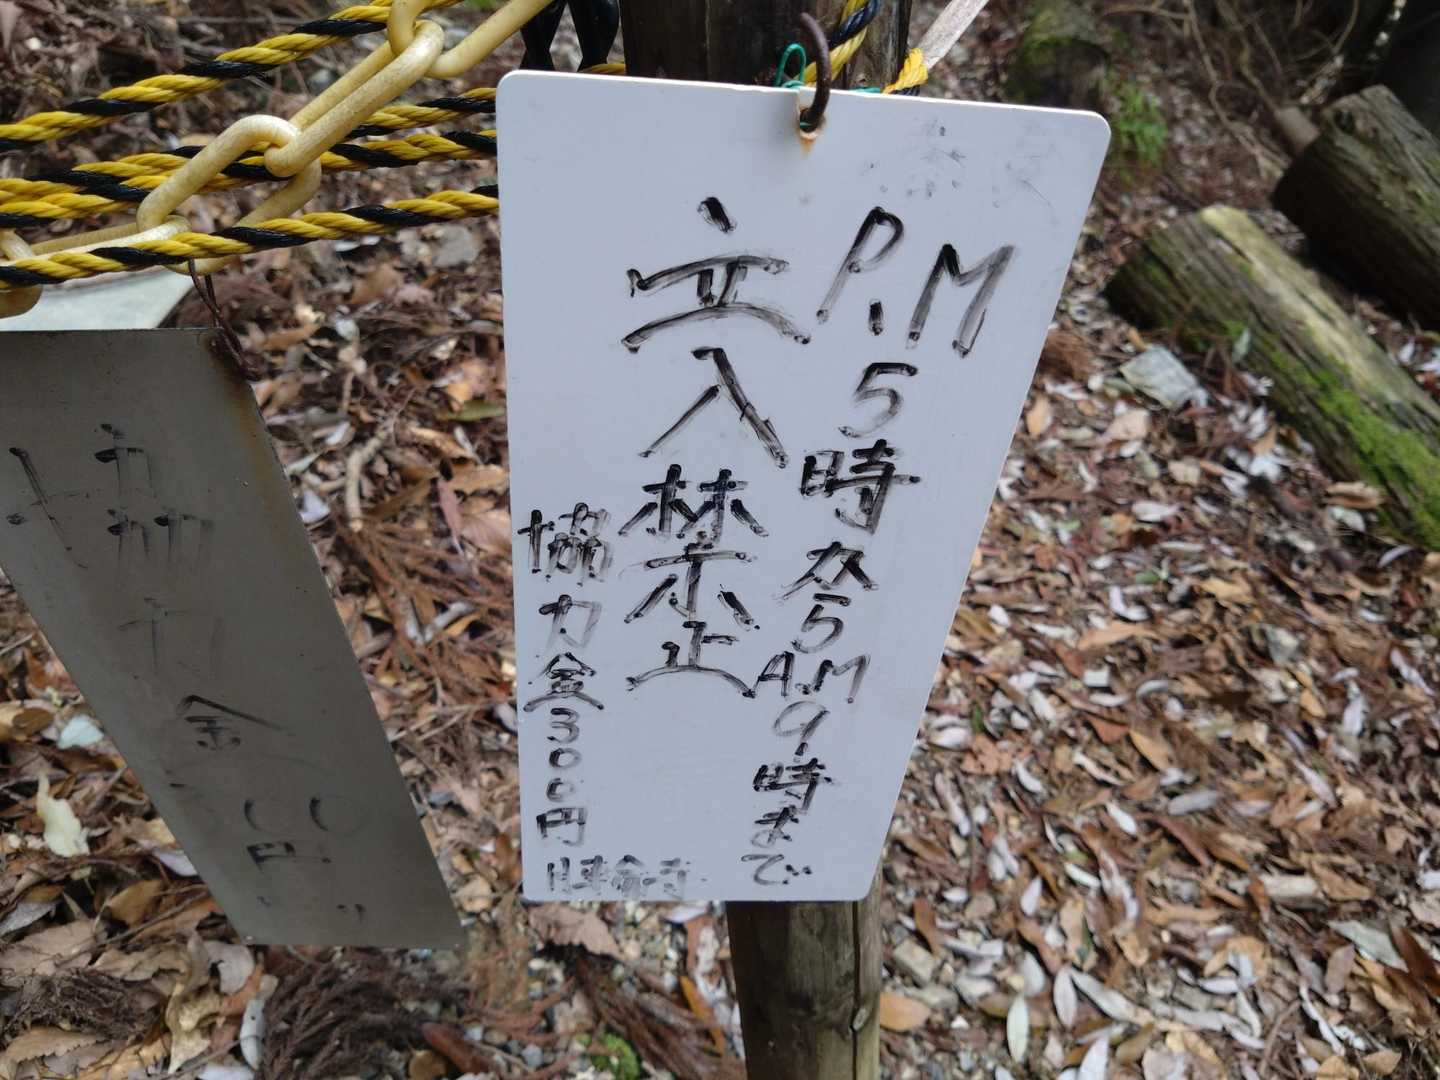 P.M5時からA.M9時まで
立入禁止
協力金300円
月輪寺
協力金
300円